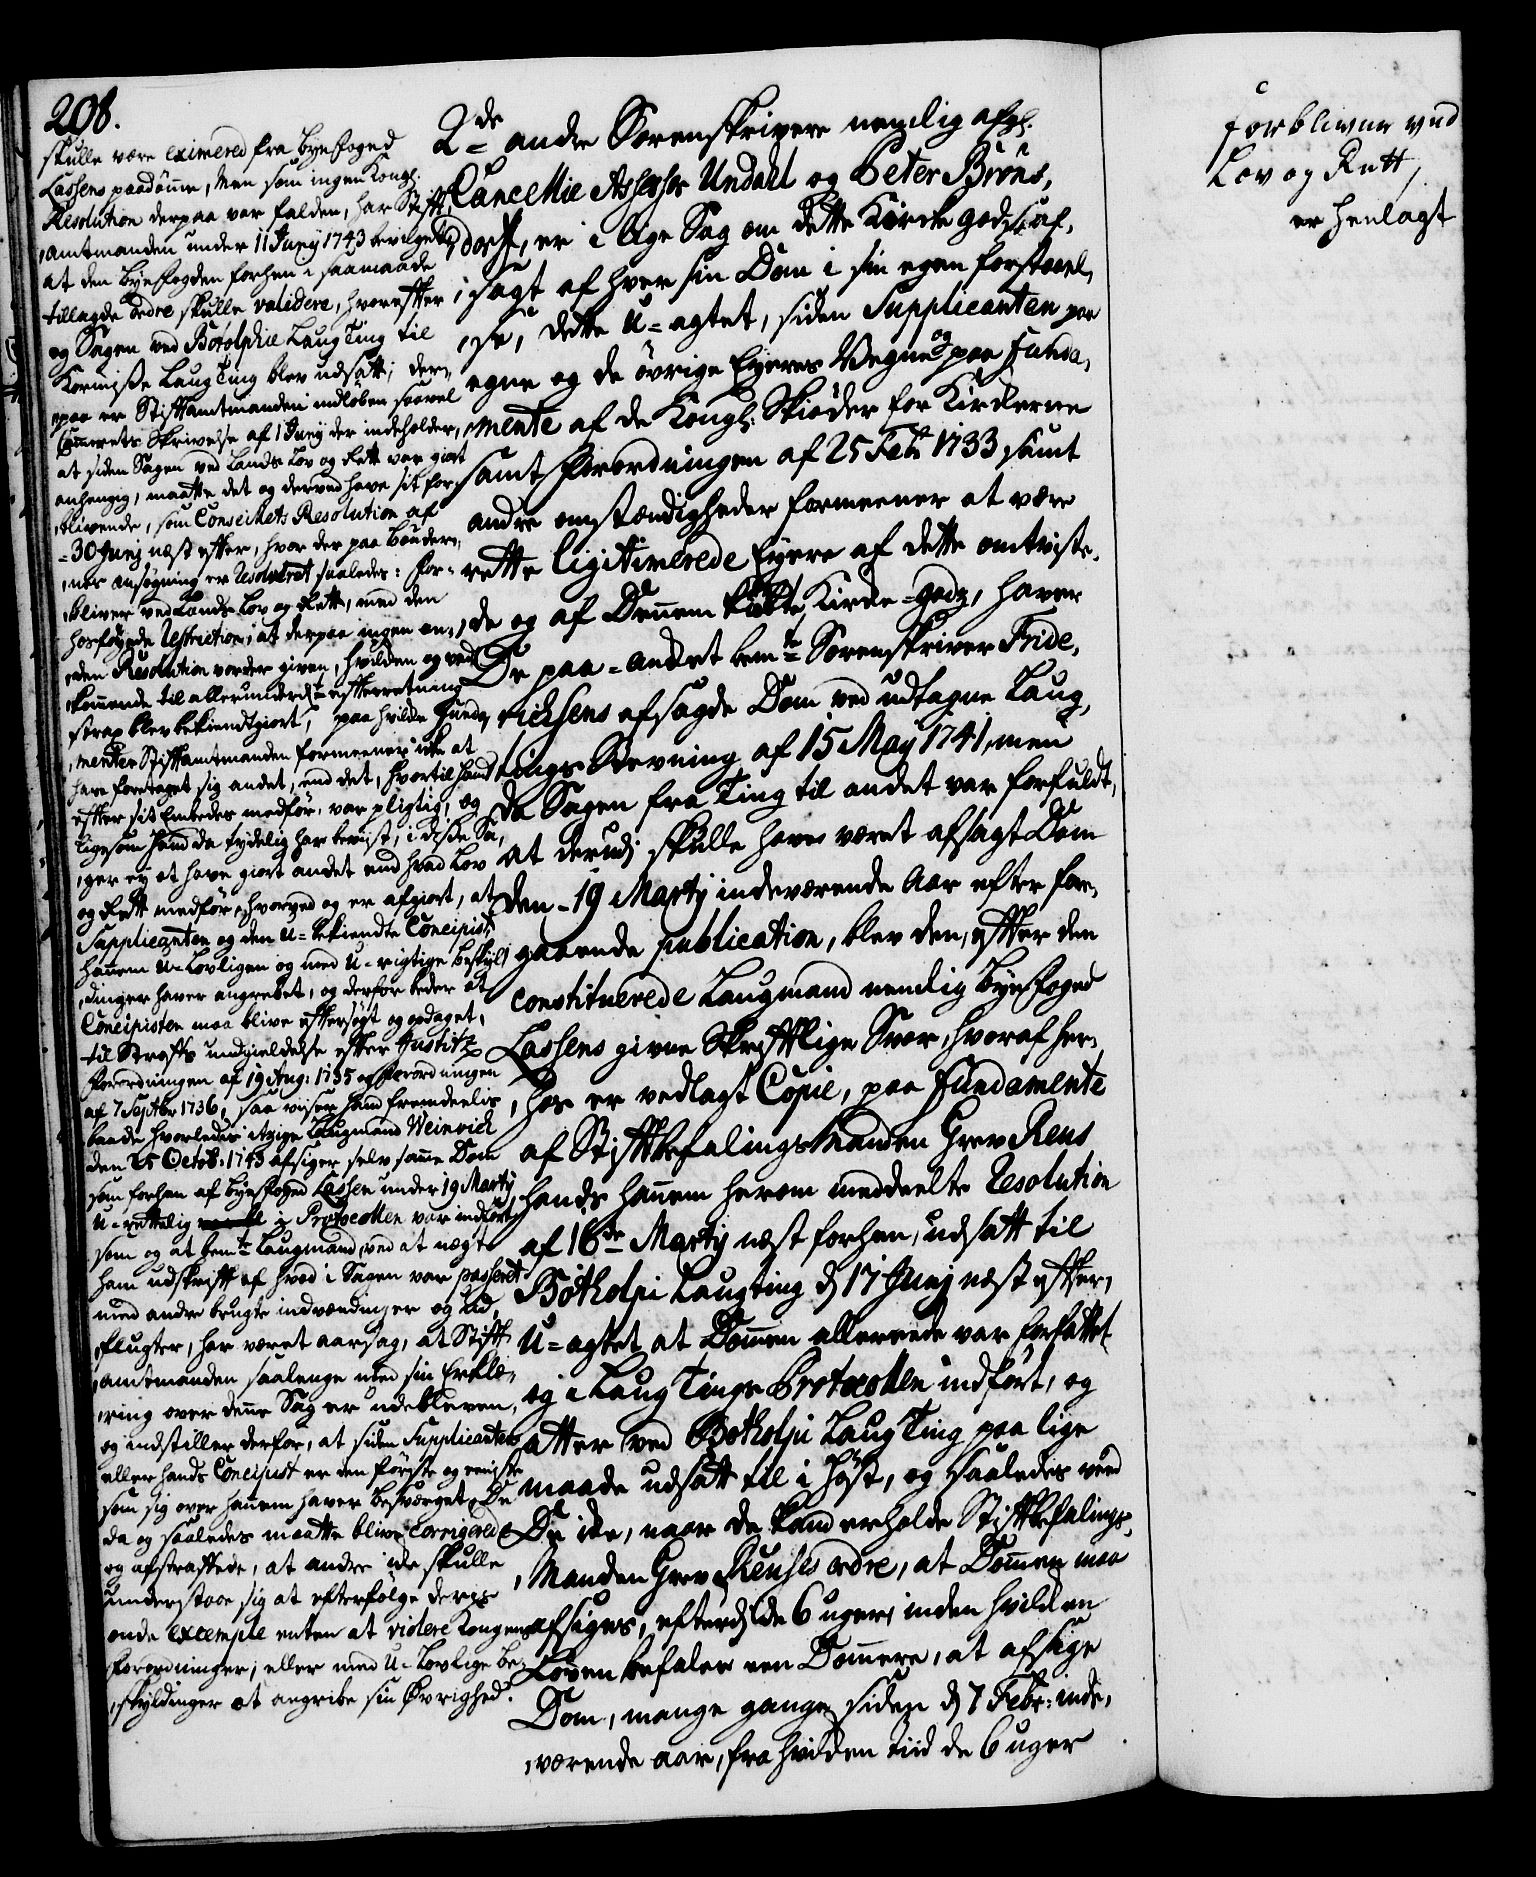 208.
skulle være eximered fra Byefoged
Lassens paadömme, Men som ingen Kongl.
Resolution derpaa var falden, har Stifft
amtmanden under 11 Junÿ 1743 bevilget
at den Byefogden forhen i saamaade
tillagde ordre skulle validere, hvorefter
og Sagen ved Botolphie LaugTing til
Kormisse LaugTing blev udsatt; der,
,paa er Stifftamtmanden indløben saavel
Cammerets Skrivelse af 1 Junÿ der indeholder,
at siden Sagen ved Lands Lov og Rett var giort
anhengig, maatte det og derved have sit for,
,blivende, som Conseillets Resolution af
30 Junÿ næst effter, hvor der paa Bönder,
,nes ansøgning er Resolveret saaledes: For-
,bliver ved Lands Lov og Rett, med den
hosföyede Restriction; at derpaa ingen an,
,den Resolution vorder given, hvilken og ved,
,kommende til allerunderd.st efterretning
strax blev bekiendtgiort, paa hvilke Funda,
,menter Stifftamtmanden formeener icke at
have foretaget sig andet, end det, hvortil hand
effter sit Embedes medför, var pligtig, og
ligesom hand da tydelig har beviist, i disse Sa,
,ger ey at have giort andet end hvad Lov
og Rett medför, hvorved og er afgiort, at
Supplicanten og den U-bekiendte Concipist
hannem U-Lovligen og med U-rigtige beskyl
,dinger haver angrebet, og derfor beder at
Concipisten maa blive efftersögt og opdaget,
til Straffs undgieldelse effter Justitz
Forordningen af 19 Aug: 1735 og Forordningen
af 7 Septbr 1736, saa viiser hand fremdeelis
baade hvorledes itzige Laugmand Weinvich
den 25 Octob: 1743 afsiger selv samme Dom
som forhen af Byefoged Lassen under 19 Martÿ
U-rettelig i Protocollen var indfört,
som og at bem.te Laugmand, ved at nægte
ham udskrifft af hvad i Sagen var passeret
med andre brugte indvendinger og Ud,
,flugter, har været aarsag, at Stifft
,amtmanden saalenge med sin Erklæ,
,ring over denne Sag er udebleven,
og indstiller derfor, at siden Supplicanten
eller hands Concipist er den förste og eeniste
som sig over hannem haver besværget, De
da og saaledes maatte blive Corrigerede
og afstraffede, at andre icke skulle
understaae sig at efterfölge deres
onde Exemple enten at violere Kongens
Forordninger, eller med U-Lovlige be,
,skyldinger at angribe sin Øvrighed.
2de andre Sorenskrivere nemlig afgl.
Cancellie Assessor Undahl og Peter Bröns,
,dorff, er i lige Sag om dette Kircke godz af,
,sagt af hver sin Dom i sin egen forstaael,
,se, dette U-agtet, siden Supplicanten paa
egne og de övrige Eyeres Vegne og paa Funda,
,mente af de Kongl: Skiøder for Kirckerne
samt Forordningen af 25 Feb: 1733 samt
andre omstændigheder formeener at være
rette ligitimerede Eyere af dette omtviste,
,de og af Dennem kiöbte Kircke-godz, haver
De paa-ancket bem.te Sorenskriver Fride,
richsens afsagde Dom ved udtagne Laug,
,tings Stevning af 15 May 1741, men
da Sagen fra Ting til andet var forfuldt,
at derudj skulle haves været afsagt Dom
den 19 Martÿ indeværende Aar efter for,
,gaaende publication, blev den, effter den
constituerede Laugmand nemlig Byefoged
Lassens givne Skrifftlige Svar, hvoraf her,
,hos er vedlagt Copie, paa Fundamente
af Stifftbefalingsmanden Grev Rens
hands hannem herom meddeelte Resolution
af 16de Martÿ næst forhen, udsatt til
Botholpi Laugting d 17 Junÿ næst effter,
U-agtet at Dommen allereede var forfattet
og i LaugTings Protocollen indfört, og
atter ved Botholpi LaugTing paa lige
maade udsatt til i Höst, og saaledes veed
De icke, naar de kand erholde Stifftbefalings,
,Manden Grev Renses ordre, at Dommen maa
afsiges, efterdj de 6 uger, inden hvilcken
Loven befaler een Dommere, at afsige
Dom, mange gange siden d 7 Febr: inde,
,værende aar, fra hvilcken tiid de 6 uger
forbliver ved
Lov og Rett,
er henlagt